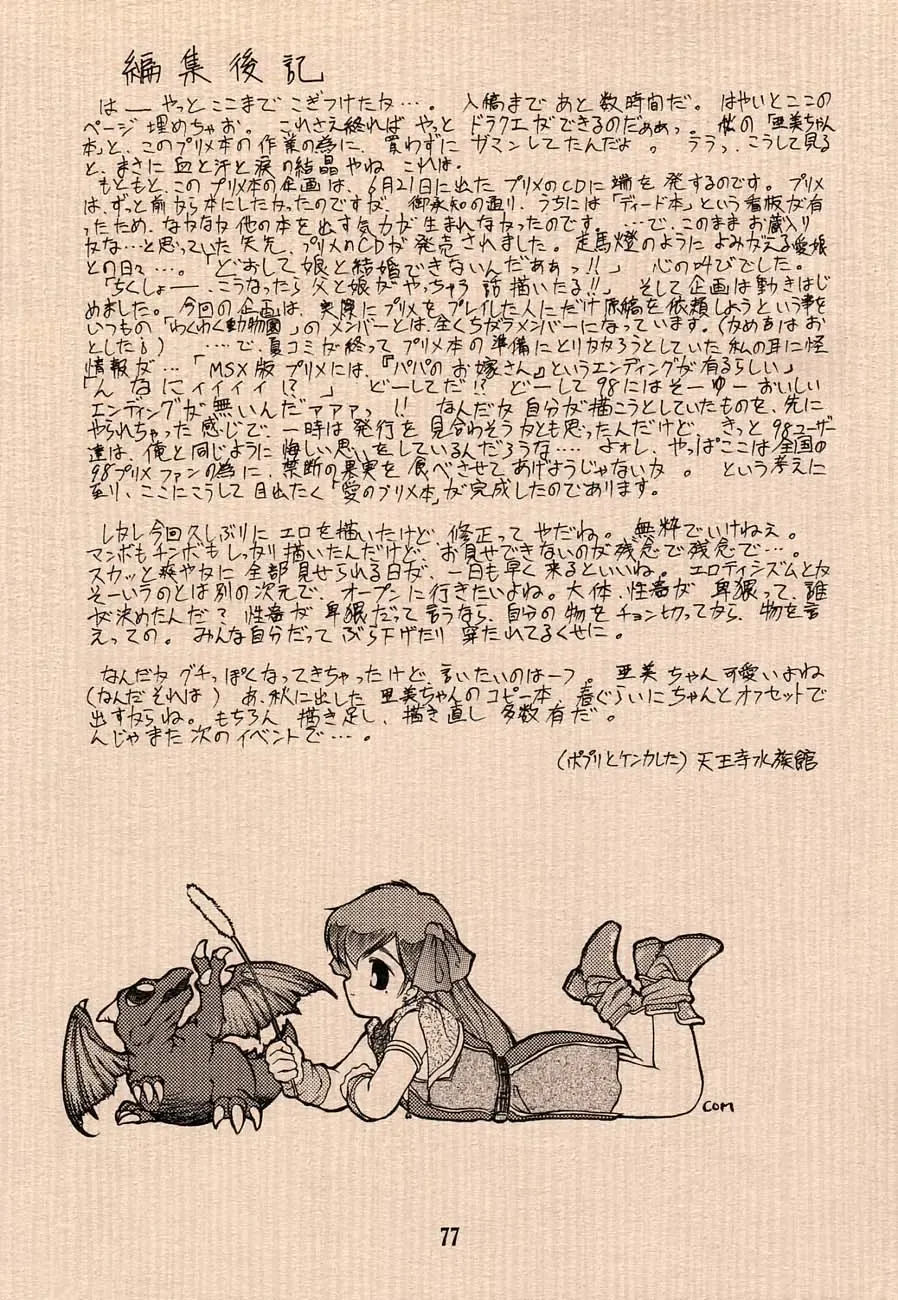 編集後記
は――やっとここまで こぎつけたな…。 入稿まで あと数時間だ。 はやいとここの
ページ埋めちゃお。 これさえ終れば やっと ドラクエができるのだぁぁっ。 秋の「亜美ちゃん
本」と、このプリメ本の作業の為に、買わずに ガマンしてたんだよ 。 ララっ、こうして見る
と、まさに 血と汗と涙の結晶やね これは。
もともと、この プリメ本の企画は、6月21日に出た プリメのCDに 端を 発するのです。 プリメ
は、ずっと前から本にしたかったのですが、 御承知の通り、うちには「ディード本」という看板が有
ったため、なかなか他の本を出す気力が生まれなかったのです。 …で、このまま お蔵入り
かな…と思っていた 矢先、プリメのCDが 発売されました。 走馬燈のように よみがえる愛娘
との日々…。 「どおして娘と結婚できないんだあぁっ!!」 心の叫びでした。
「ちくしょー、こうなったら 父と娘がやっちゃう 話描いたる!!」 そして企画は動きはじ
めました。 今回の企画は、実際にプリメをプレイした人にだけ原稿を依頼しようという事を
いつもの 「わくわく動物園」のメンバーとは、全くちがうメンバーになっています。
とした。) …で、夏コミが終って プリメ本の準備にとりかかろうとしていた 私の耳に怪
情報が… 「MSX版プリメには、『パパのお嫁さん』というエンディングが有るらしい」
「んなにィィィィ!? 」 どーしてだ!? どーして98にはそーゆー おいしい
エンディングが無いんだァァァっ !! なんだか 自分が描こうとしていたものを、先に
やられちゃった 感じで、一時は発行を 見合わそうかとも思ったんだけど、きっと98ユーザー
達は、俺と同じように 悔しい思いをしているんだろうな…。 よォし、やっぱここは全国の
98プリメファンの為に、禁断の果実を 食べさせてあげようじゃないか 。 という考えに
至り、ここにこうして 目出たく 「愛のプリメ本」が完成したのであります。
しかし今回久しぶりに エロを描いたけど、修正って やだね。 無粋でいけねえ。
マンボもチンボも しっかり描いたんだけど、お見せできないのが 残念で残念で…。
スカッと爽やかに 全部見せられる日が、一日も早く来るといいね。 エロティシズムとか
そーいうのとは別の次元で、オープンに行きたいよね。大体、性器が 卑猥って、誰
が決めたんだ? 性器が卑猥だって言うなら、自分の物を チョン切ってから、物を言
えっての。 みんな自分だって ぶら下げたり 穿たれてるくせに。
なんだか グチっぽくなってきちゃったけど、言いたいのは一つ 。 亜美ちゃん 可愛いよね
(なんだ それは ) あ、秋に出した 亜美ちゃんのコピー本、春ぐらいにちゃんとオフセットで
出すからね。もちろん 描き足し、描き直し 多数有だ。
んじゃまた次のイベントで…。
(ポプリとケンカした) 天王寺水族館
COM
77